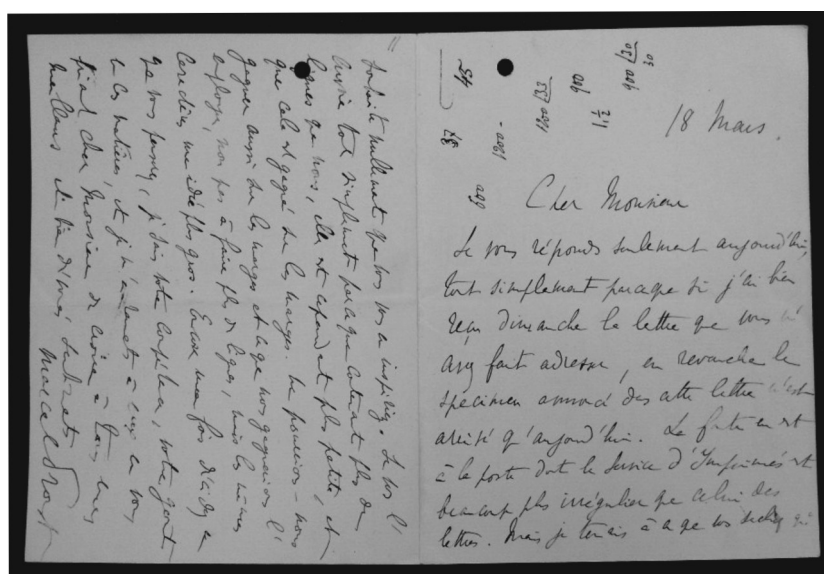 18 Mars.
Cher Monsieur
Je vous réponds seulement aujourd'hui,
tout simplement parce que si j'ai bien
reçu dimanche la lettre que vous m'
avez fait adresser, en revanche le
spécimen annoncé dans cette lettre n'est
arrivé qu'aujourd'hui. La faute en est
à la poste dont le Service d'Imprimés est
beaucoup plus irrégulier que celui des
lettres. Mais je tenais à ce que vous sachiez
souhaite nullement que vous vous en inspiriez. Je vous l'
envoie tout simplement parce que contenant plus de
lignes que nous, elle est cependant plus petite, et
que cela est gagné sur les marges. Ne pourrions-nous
gagner aussi sur les marges et ce que nous gagnerions l'
employer, non pas à faire plus de lignes, mais les mêmes
une idée plus gros. Encore une fois décidez
que vous pensez, je sais votre votre goût
en ces matières, et je m'en remets à lui en vous
priant cher Monsieur de croire à tous mes
meilleurs et bien
Marcel Proust